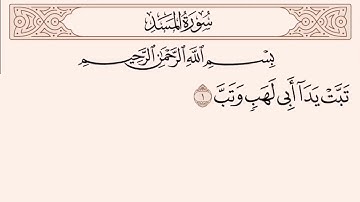 سُورَةُ المَسَدِ
بِسْمِ ٱللَّهِ ٱلرَّحْمَٰنِ ٱلرَّحِيمِ
تَبَّتْ يَدَآ أَبِى لَهَبٍ وَتَبَّ ١